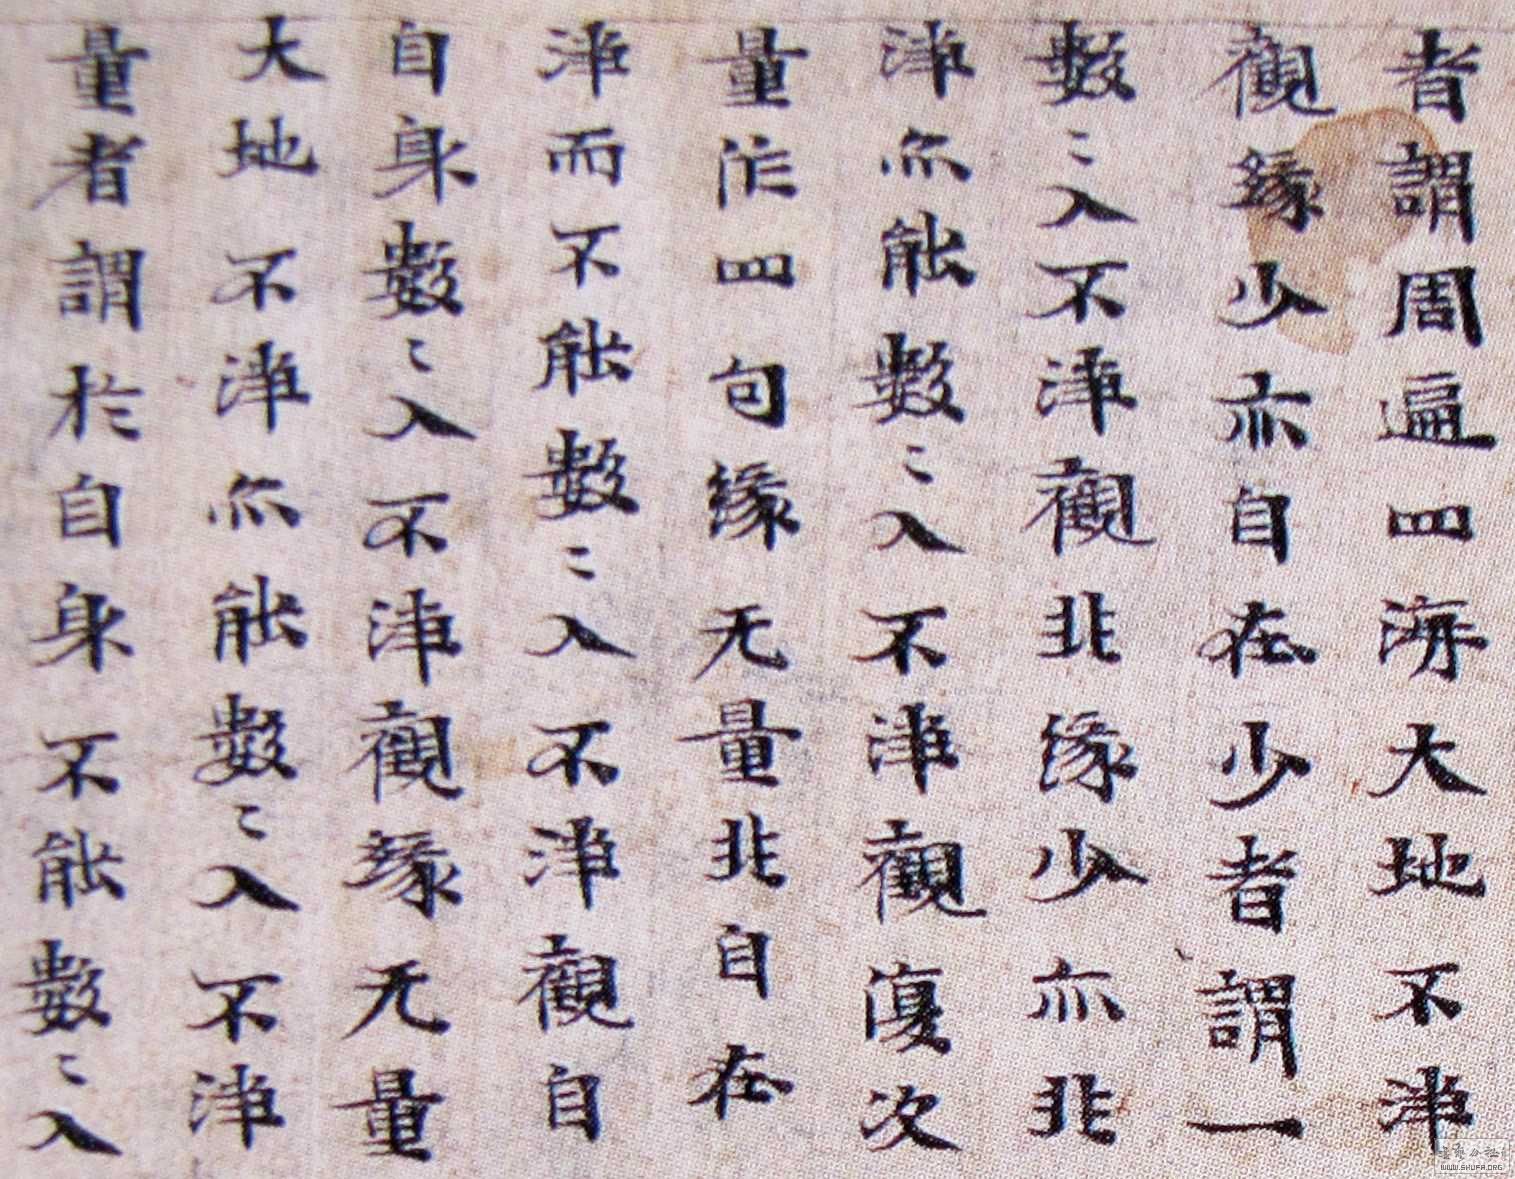 者謂周遍四海大地不淨
觀緣少亦自在少者謂一
數〻入不淨觀非緣少亦非
淨亦能數〻入不淨觀復次
量作四句緣无量非自在
淨而不能數〻入不淨觀自
自身數〻入不淨觀緣无量
大地不淨亦能數〻入不淨
量者謂於自身不能數〻入
WWW.SHUFA.ORG